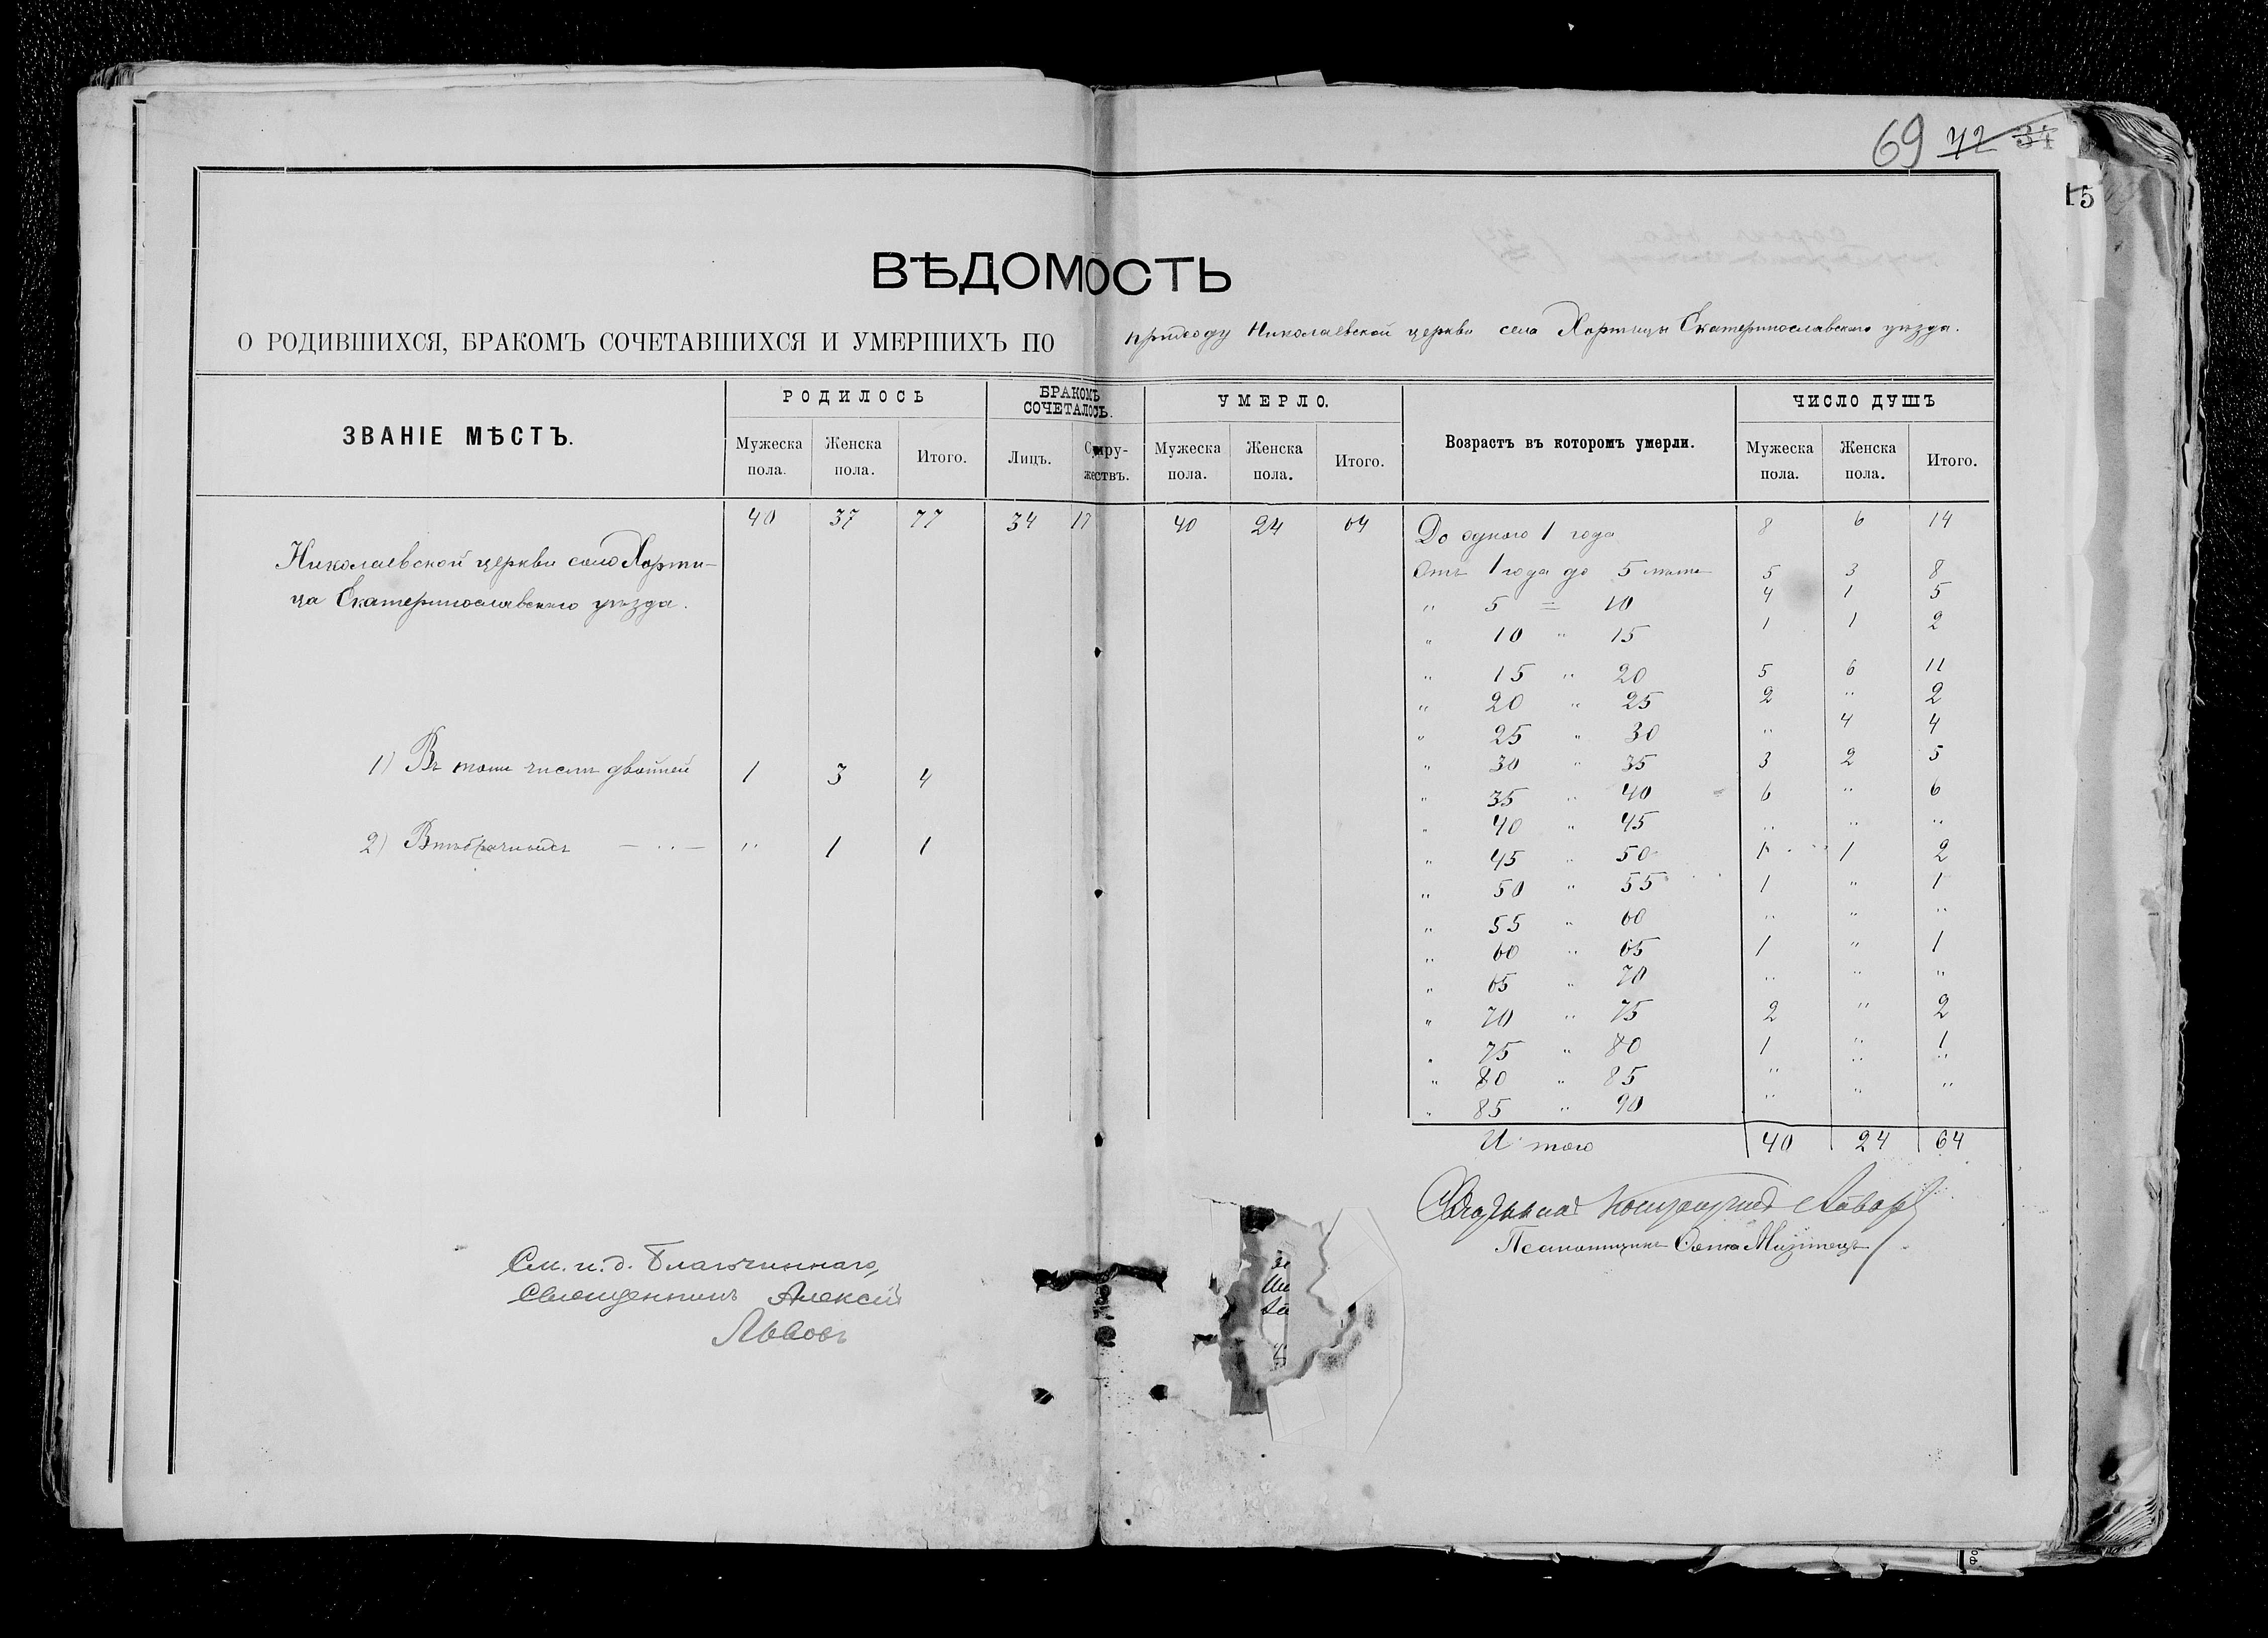 69 72 34
15
ВѢДОМОСТЬ
О РОДИВШИХСЯ, БРАКОМЪ СОЧЕТАВШИХСЯ И УМЕРШИХЪ ПО приходу Николаевской церкви села Хортицы Екатеринославскаго уѣзда.
ЗВАНІЕ МѢСТЪ.
РОДИЛОСЬ
Мужеска пола. Женска пола. Итого.
БРАКОМЪ СОЧЕТАЛОСЬ.
Лицъ. Супру-жествъ.
УМЕРЛО.
Мужеска пола. Женска пола. Итого.
Возрастъ въ которомъ умерли.
ЧИСЛО ДУШЪ
Мужеска пола. Женска пола. Итого.
Николаевской церкви село Хорти-
ца Екатеринославскаго уѣзда.
40 37 77 34 17 40 24 64
1) Въ томъ числѣ двойней 1 3 4
2) Внѣбрачныхъ — „ — „ 1 1
До одного 1 года 8 6 14
Отъ 1 года до 5 лѣтъ 5 3 8
„ 5 = 10 4 1 5
„ 10 „ 15 1 1 2
„ 15 „ 20 5 6 11
„ 20 „ 25 2 „ 2
„ 25 „ 30 „ 4 4
„ 30 „ 35 3 2 5
„ 35 „ 40 6 „ 6
„ 40 „ 45 „ „ „
„ 45 „ 50 1 1 2
„ 50 „ 55 1 „ 1
„ 55 „ 60 „ „ „
„ 60 „ 65 1 „ 1
„ 65 „ 70 „ „ „
„ 70 „ 75 2 „ 2
„ 75 „ 80 1 „ 1
„ 80 „ 85 „ „ „
„ 85 „ 90 „ „ „
Итого 40 24 64
Псаломщикъ
См. и. д. Благочиннаго,
Священникъ Алексій
Львовъ